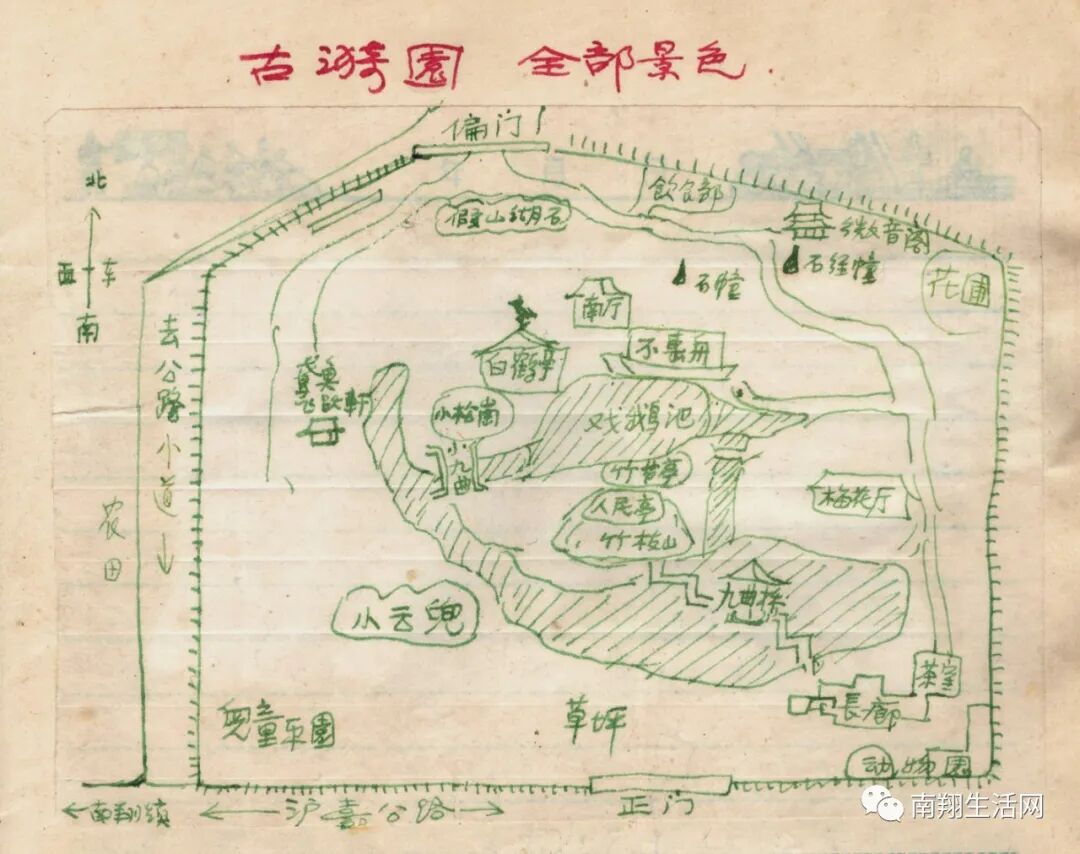 古漪園 全部景色.
偏门
北
西 东
南
飲食部
假山湖石
微音阁
石经幢
石幢
花圃
南厅
不系舟
白鹤亭
去公路小道
农田
鸢飞鱼跃軒
小松崗
小九曲
戏鹅池
竹枝山
人民亭
梅花厅
九曲桥
小云兜
茶室
長廊
兒童乐園
草坪
动物園
正门
南翔镇
沪嘉公路
南翔生活网